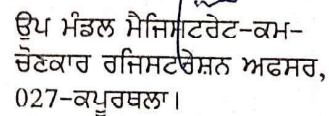 ਉਪ ਮੰਡਲ ਮੈਜਿਸਟਰੇਟ-ਕਮ-
ਚੋਣਕਾਰ ਰਜਿਸਟਰੇਸ਼ਨ ਅਫਸਰ,
027-ਕਪੂਰਥਲਾ।